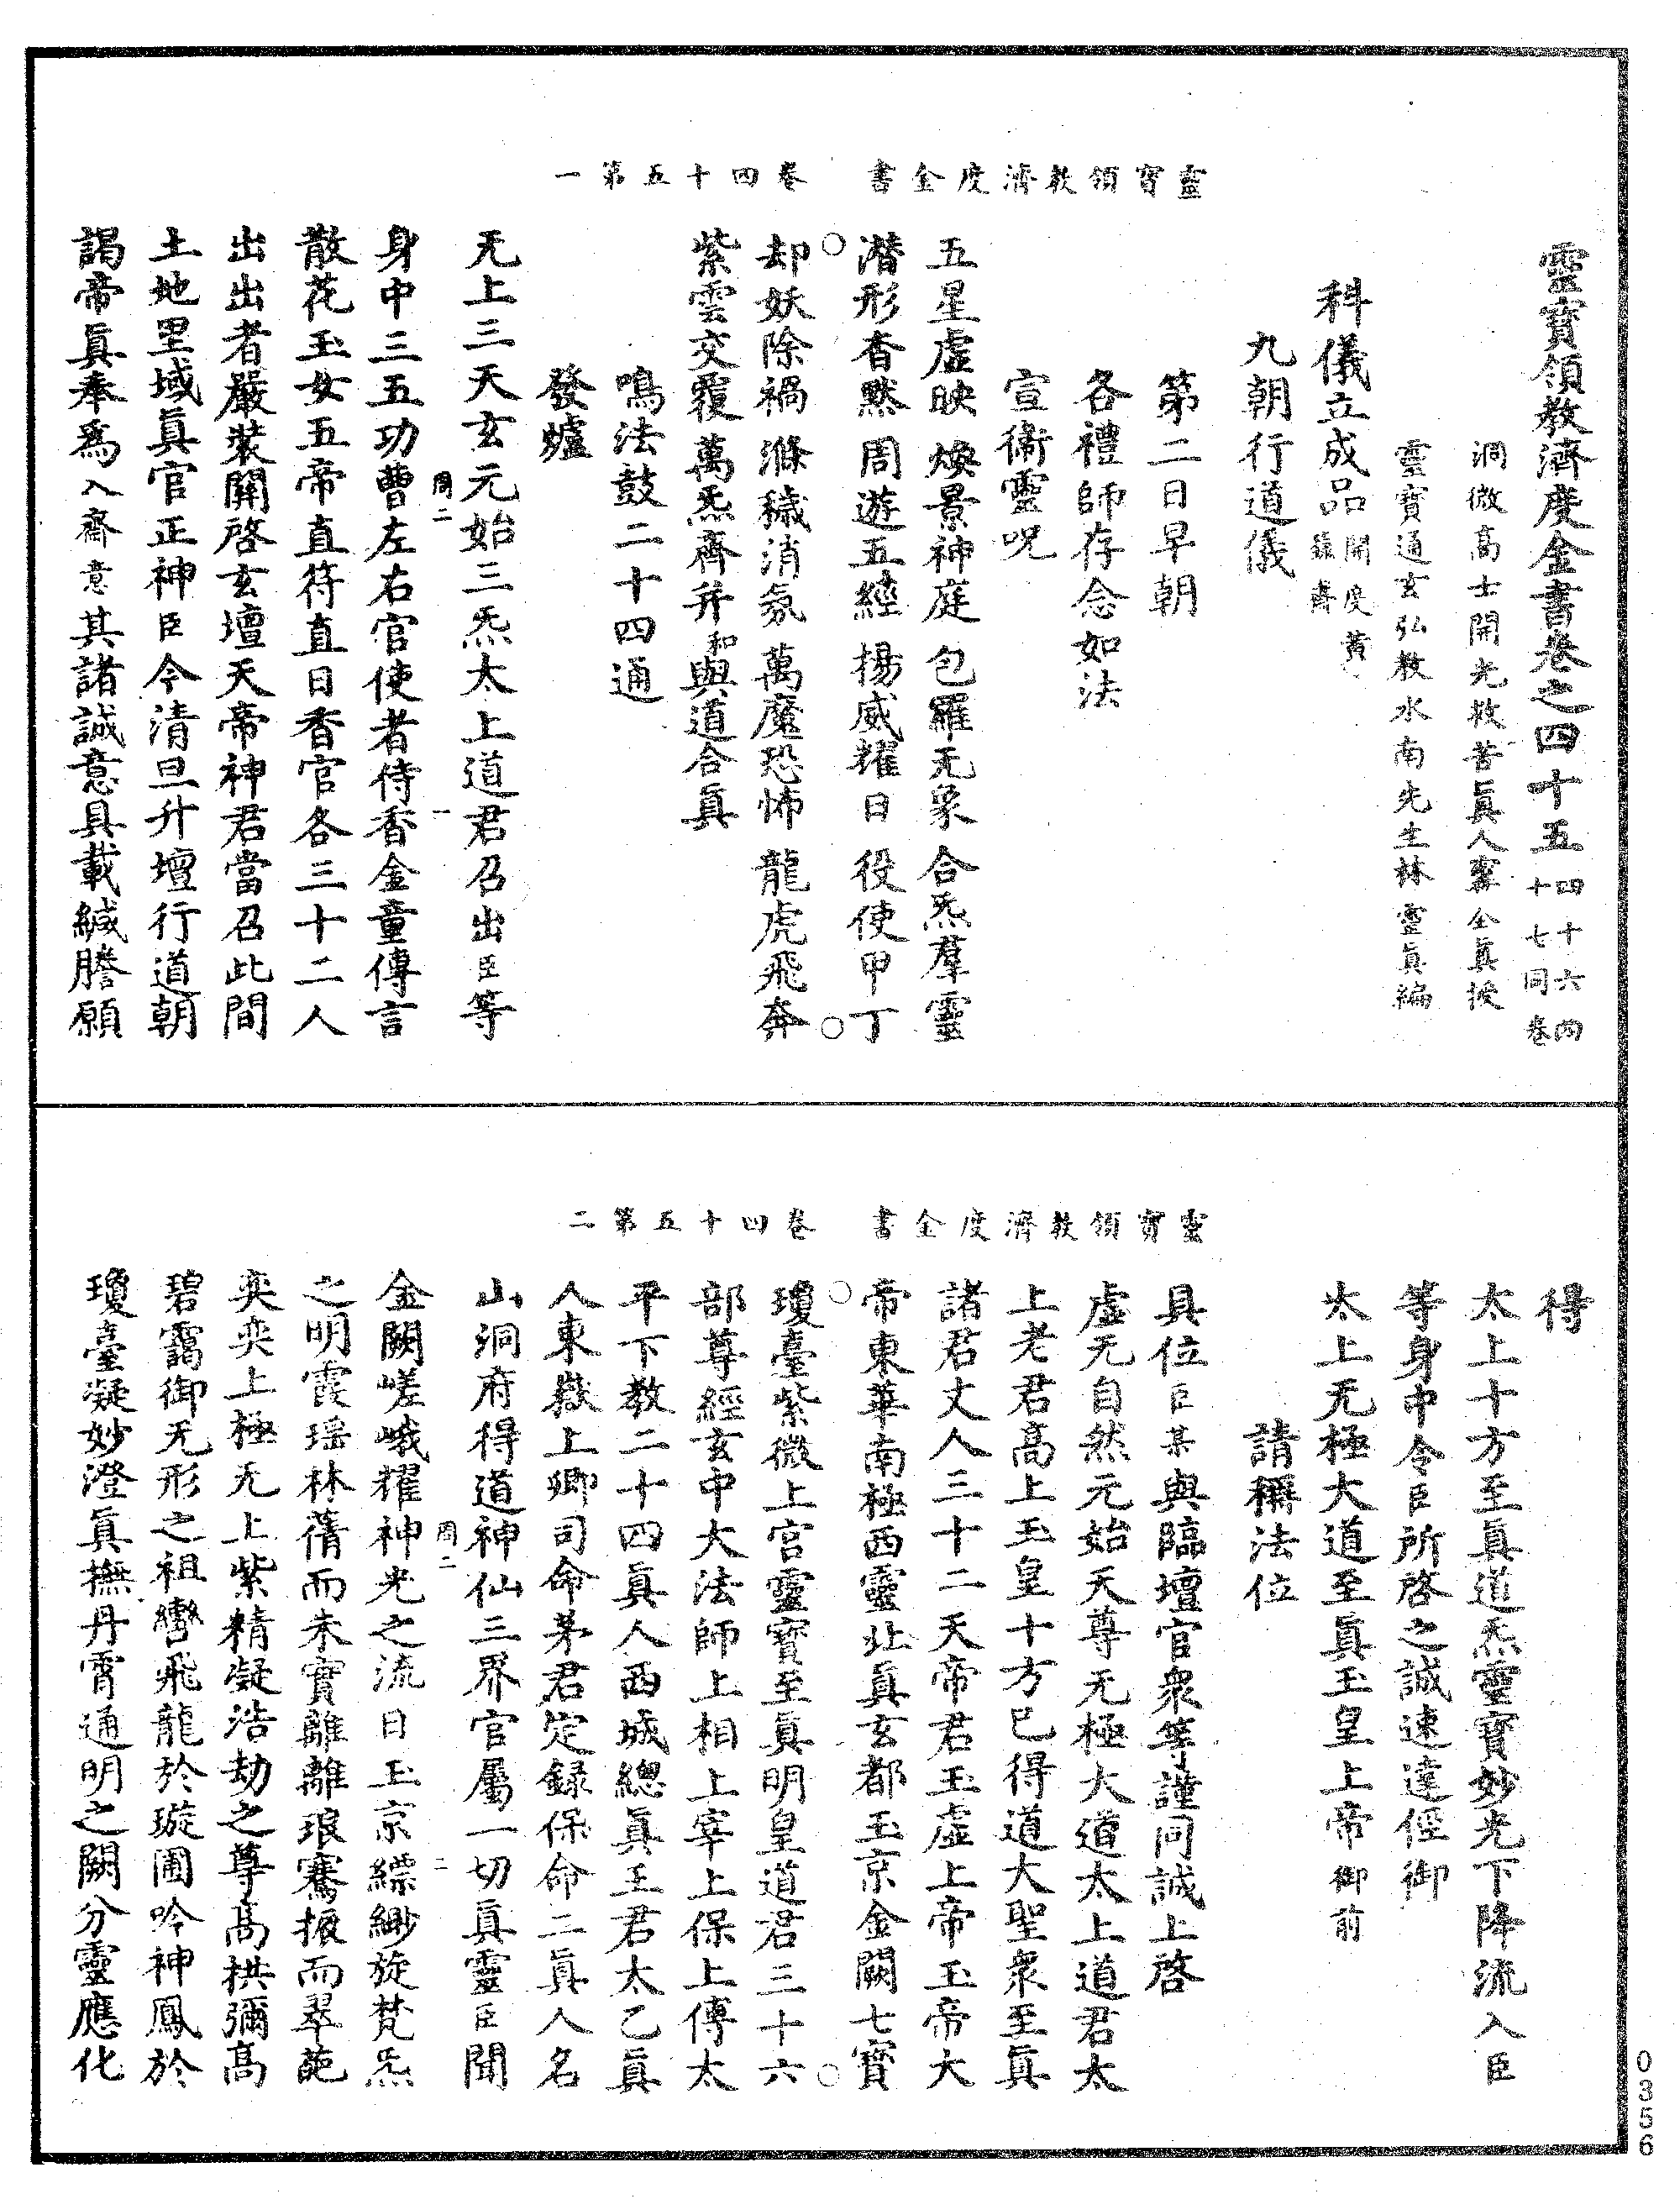 靈寶領教濟度金書 卷四十五第一
靈寶領教濟度金書卷之四十五四十六同卷十七同卷
洞微高士開光救苦眞人甯全眞授
靈寶通玄弘教水南先生林靈眞編
科儀立成品開度黃籙齋
九朝行道儀
第二日早朝
各禮師存念如法
宣衞靈呪
五星虛映 煥景神庭 包羅无象 合炁羣靈
潛形杳黙 周遊五經 揚威耀日 役使甲丁
却妖除禍 滌穢消氛 萬魔恐怖 龍虎飛奔
紫雲交覆 萬炁齊并 和 與道合眞
鳴法鼓二十四通
發爐
无上三天玄元始三炁太上道君召出臣等
身中三五功曹左右官使者侍香金童傳言
散花玉女五帝直符直日香官各三十二人
出出者嚴裝關啓玄壇天帝神君當召此間
土地里域眞官正神臣今清旦升壇行道朝
謁帝眞奉爲入齋意其諸誠意具載緘謄願
周二
一
靈寶領教濟度金書 卷四十五第二
得
太上十方至眞道炁靈寶妙光下降流入臣
等身中令臣所啓之誠速達徑御
太上无極大道至眞玉皇上帝御前
請稱法位
具位臣某與臨壇官衆等謹同誠上啓
虛无自然元始天尊无極大道太上道君太
上老君高上玉皇十方已得道大聖衆至眞
諸君丈人三十二天帝君玉虛上帝玉帝大
帝東華南極西靈北眞玄都玉京金闕七寶
瓊臺紫微上宮靈寶至眞明皇道君三十六
部尊經玄中大法師上相上宰上保上傅太
平下教二十四眞人西城總眞王君太乙眞
人東嶽上卿司命茅君定錄保命二眞人名
山洞府得道神仙三界官屬一切眞靈臣聞
金闕嵯峨耀神光之流日玉京縹緲旋梵炁
之明霞瑤林蒨而朱實離離琅騫振而翠葩
奕奕上極无上紫精凝浩劫之尊高拱彌高
碧靄御无形之祖轡飛龍於璇圃吟神鳳於
瓊臺凝妙澄眞撫丹霄通明之闕分靈應化
周二
二
0356